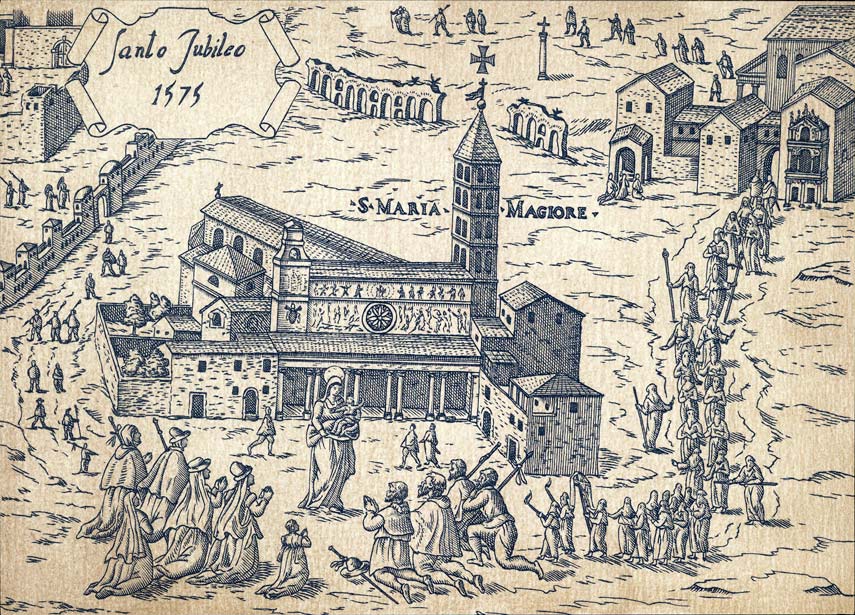 Santo Jubileo
1575
·S·MARIA· ·MAGIORE·